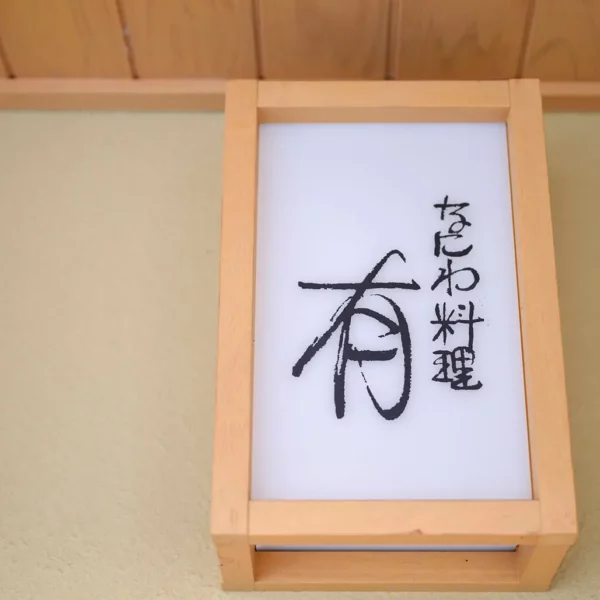 なにわ料理
有